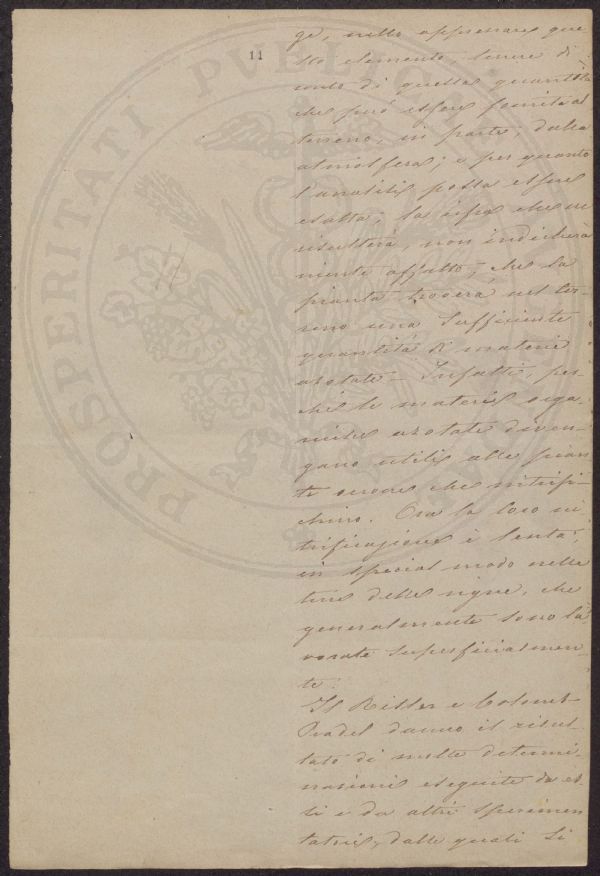 11
PROSPERITATI PVBLICAE
ge, nello apprezzare que
sto elemento, tenere di
conto di quella quantità
che può essere fornita al
terreno, in parte, dalla
atmosfera; e per quanto
l'analisi possa essere
esatta, la cifra che ne
risulterà, non indicherà
niente affatto, che la
pianta troverà nel ter-
reno una sufficiente
quantità di materie
azotate – Infatti, per
chè le materie orga-
niche azotate diven-
gano utili alle pian
te occorre che nitrifi-
chino. Ora la loro ni
trificazione è lenta,
in special modo nelle
terre delle vigne, che
generalmente sono la
vorate superficialmen-
te.
Il Risler e Colomb-
Pradel danno il risul-
tato di molte determi-
nazioni eseguite da es-
si e da altri sperimen
tatori, dalle quali si